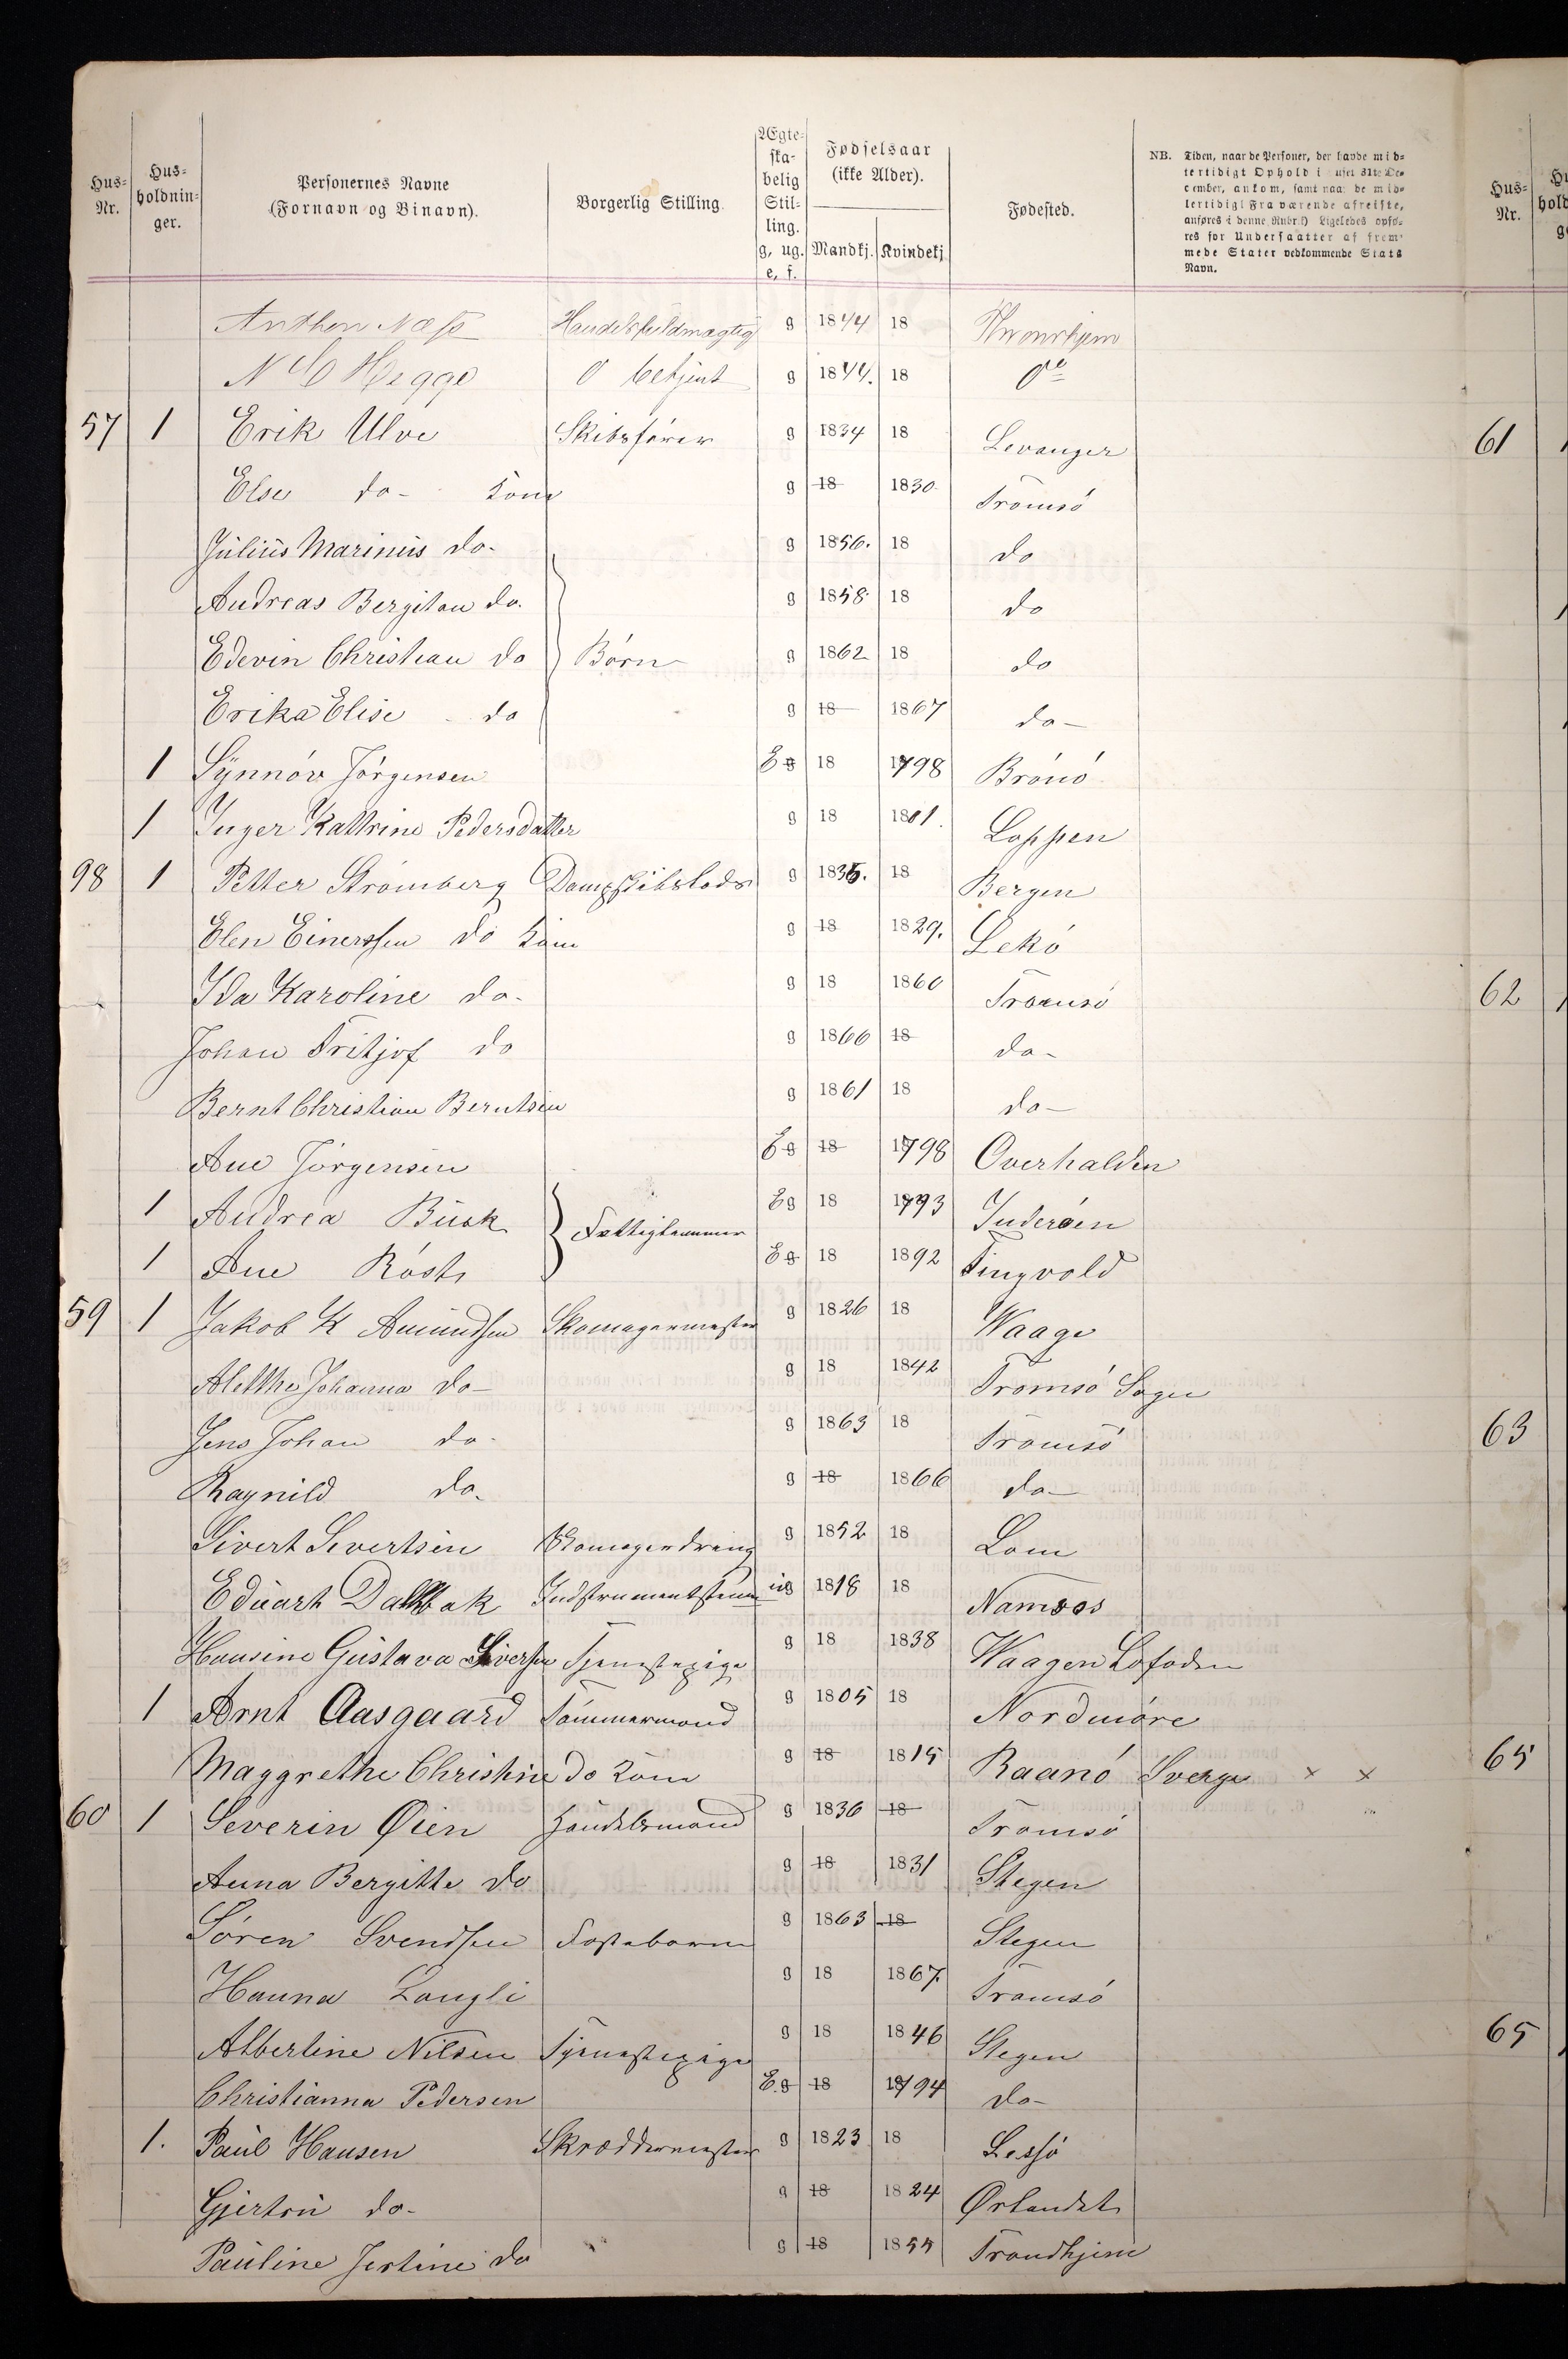 Hus-Nr. Hus-holdnin-ger. Personernes Navne (Fornavn og Binavn). Borgerlig Stilling. Ægte-ska-belig Stil-ling. g, ug. e, f. Fødselsaar (ikke Alder). Mandkj. Kvindekj. Fødested.
NB. Tiden, naar de Personer, der havde mid-
lertidigt Ophold i Huset 31te De-
cember, ankom, samt naar de mid-
lertidigt Fraværende afreiste,
anføres i denne Rubr.) Ligeledes opfø-
res for Undersaatter af frem-
mede Stater vedkommende Stats
Navn.
Anthon Næss Handelsfuldmægtig g 1844 18
Hegge betjent g 1844. 18 do
57 1 Erik Ulve Skibsfører g 1834 18 Levanger 61
Else do- Kone g 18 1830. Tromsö
Julius Marinus do- g 1856. 18 do
Andreas Bergitan do. g 1858 18 do
Edevin Christian do Börn g 1862 18 do
Erika Elise do g 18 1867 do-
1 Synnöv Jörgensen E g 18 1798 Brönö
1 Inger Kathrine Pedersdatter g 18 1801. Loppen
98 1 Petter Strömberg Dampskibslods g 1835. 18 Bergen
Elen Einerssen do Kone g 18 1829. Lekö
Ida Karoline do- g 18 1860 Tromsö 62
Johan Fritjof do g 1866 18 do-
Bernt Christian Berntsen g 1861 18 do-
Ane Jörgensen E g 18 1798 Overhalden
1 Andrea Busk Fattiglemmer E g 18 1793 Inderöen
1 Ane Röst E g 18 1892 Tingvold
59 1 Jakob K Amundsen Skomagermester g 1826 18 Waage
Alethe Johanna do- g 18 1842 Tromsö Sogn
Jens Johan do- g 1863 18 Tromsö 63
Ragnild do. g 18 1866 do-
Sivert Sivertsen Skomagerdreng g 1852 18 Lom
Eduart Dahlbak Indstrumentstem ug 1818 18 Namsos
Hansine Gustava Siversen Tjenestepige g 18 1838 Waagen Lofoden
1 Arnt Aasgaard Tömmermand g 1805 18 Nordmöre
Maggrethe Christine do Kone g 18 1815 Raanö Sverge x x 65
60 1 Severin Øien Handelsmand g 1836 18 Tromsö
Anna Bergitte do g 18 1831 Stegen
Sören Svendsen Fosterbarn g 1863 18 Stegen
Hanna Langli g 18 1867. Tromsö
Albertine Nilsen Tjenestepige g 18 1846 Stegen 65
Christianna Pedersen E. g 18 1794 do-
1. Paul Hansen Skræddermester g 1823 18 Lessö
Gjertru do- g 18 1824 Ørlandet
Pauline Jertine do g 18 1855 Trondhjem
Hus-Nr.